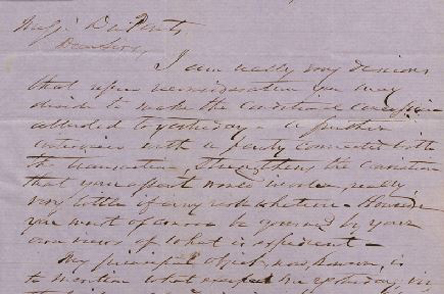 Dear Sir,
I am really very desirous
that upon reconsideration you may
decide to make the conditional
alluded to yesterday - a further
with a party connected with
the transaction, strengthens the conviction
that your assent would involve, really
very little if any risk whatever - However
you must of course be governed by your
own views of what is expedient -
My principal object, now, however, is
to mention what escaped me yesterday,